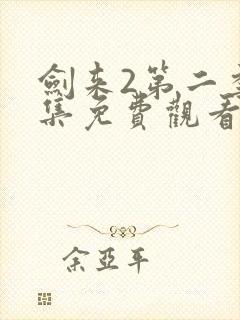 劍來2第二季
集免費觀看
余亞平